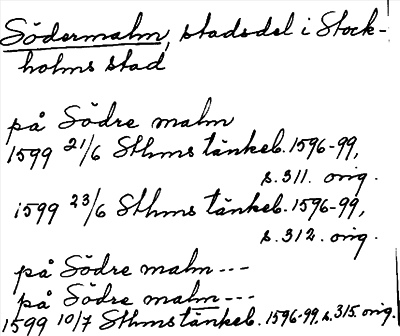 Södermalm, stadsdel i Stock-
holms stad
på Södre malm
1599 21/6 Sthms tänkeb. 1596-99,
s. 311. orig.
1599 23/6 Sthms tänkeb. 1596-99,
s. 312. orig.
på Södre malm ---
på Södre malm ---
1599 10/7 Sthms tänkeb. 1596-99, s. 315. orig.